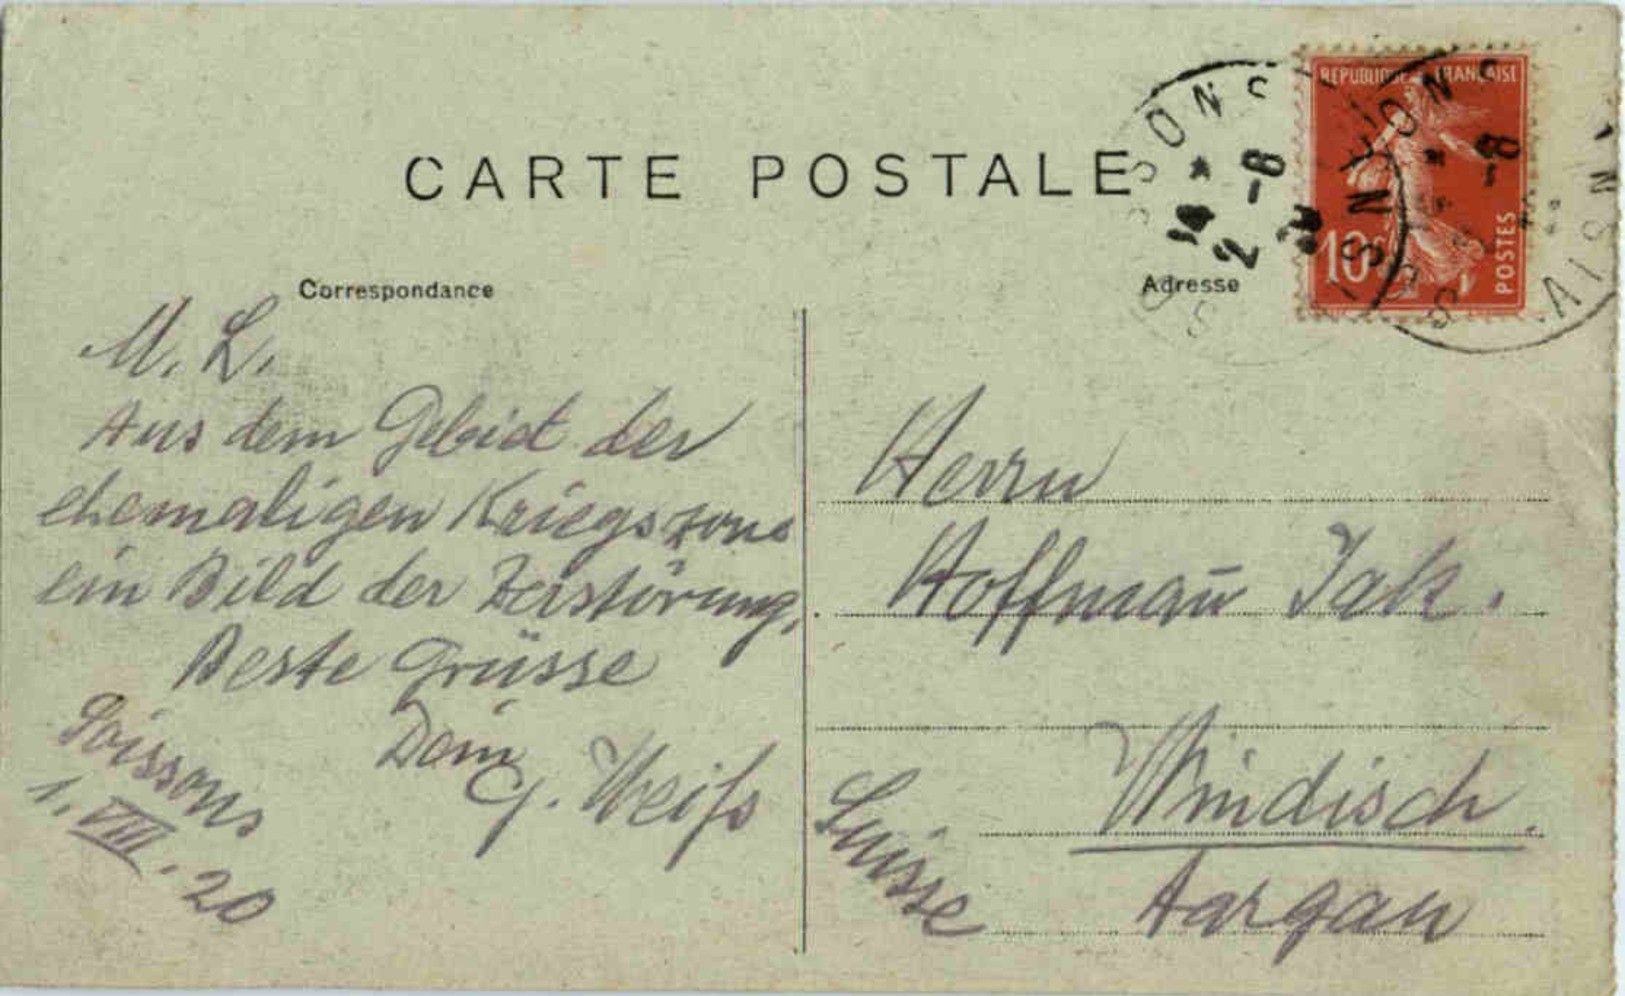 CARTE POSTALE
Correspondance
Adresse
RÉPUBLIQUE FRANÇAISE
10c
POSTES
14 * 2 -8 20
M. L.
Aus dem Gebiet der
ehemaligen Kriegszone
ein Bild der Zerstörung,
Beste Grüsse
Dein
G. Weiss
Soissons
1. VIII. 20
Herrn
Hoffmañ Jak.
Windisch.
Aargau
Suisse